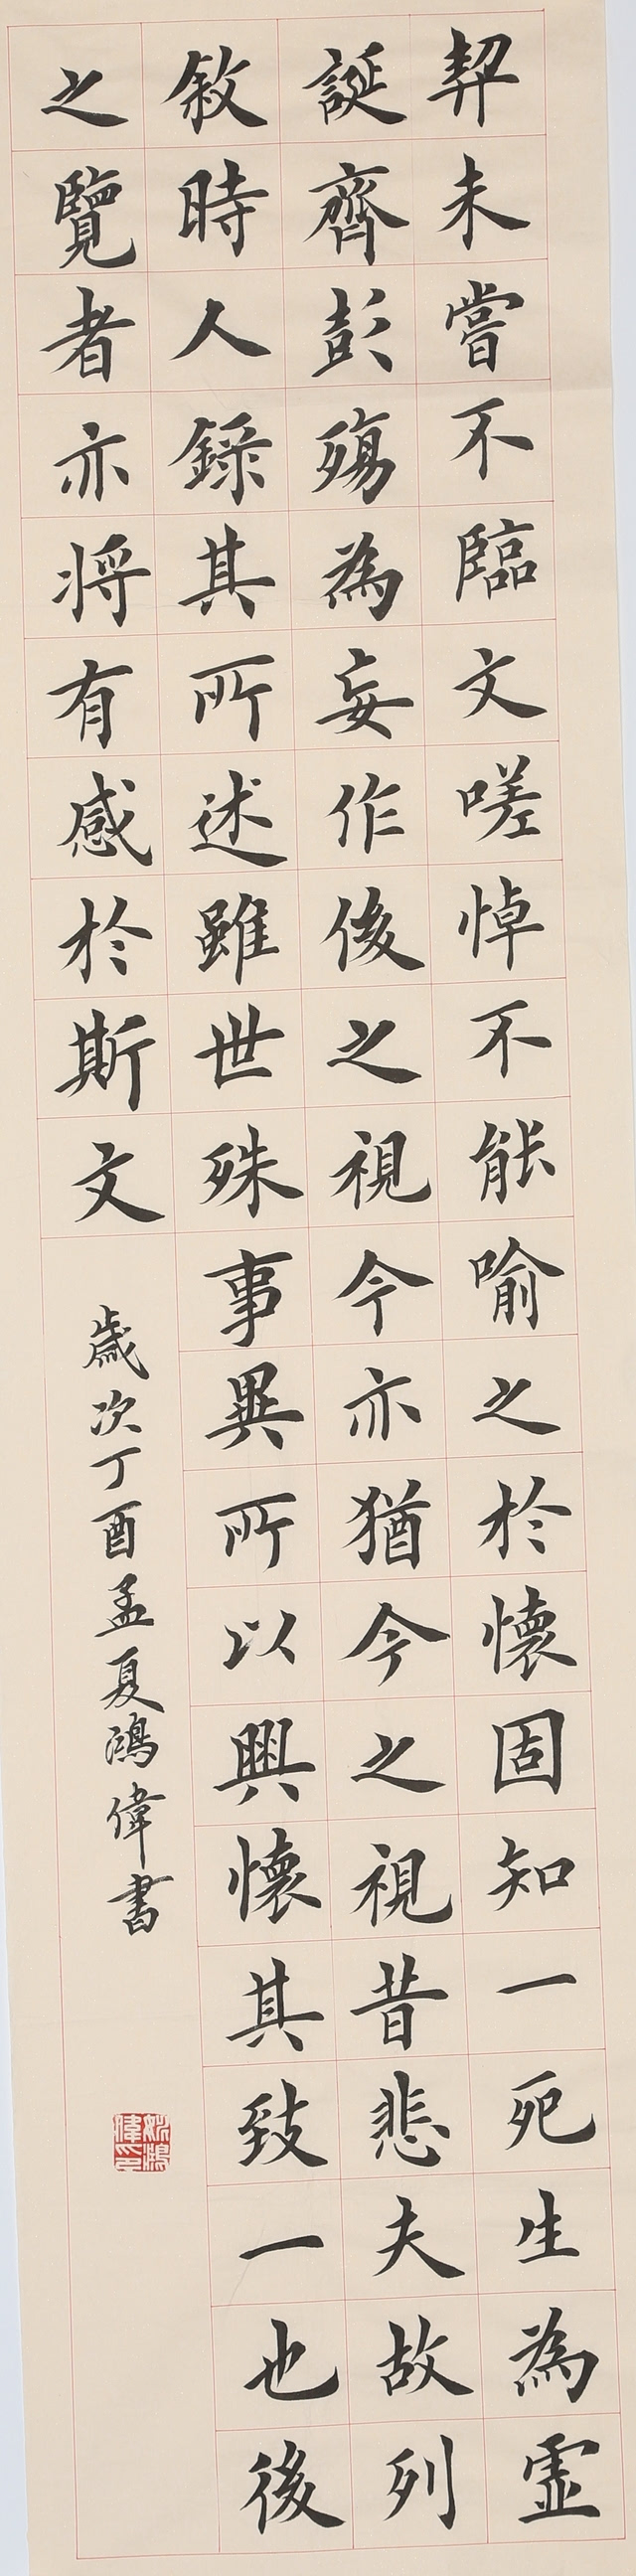 契未嘗不臨文嗟悼不能喻之於懷固知一死生為虛
誕齊彭殤為妄作後之視今亦猶今之視昔悲夫故列
敘時人錄其所述雖世殊事異所以興懷其致一也後
之覽者亦將有感於斯文
歲次丁酉孟夏鴻偉書